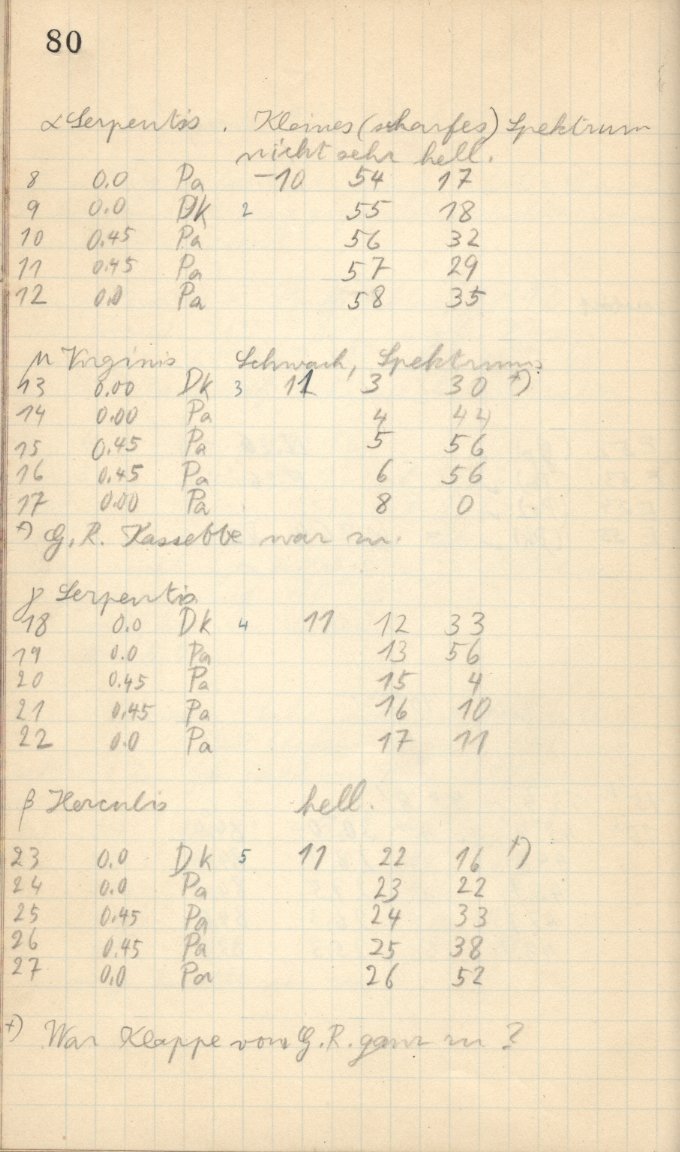 80
α Serpentis. Kleines (scharfes) Spektrum
nicht sehr hell.
8 0.0 Pa -10 54 17
9 0.0 Dk 2 55 18
10 0.45 Pa 56 32
11 0.45 Pa 57 29
12 0.0 Pa 58 35
μ Virginis Schwach, Spektrum
13 0.00 Dk 3 11 3 30 +)
14 0.00 Pa 4 44
15 0.45 Pa 5 56
16 0.45 Pa 6 56
17 0.00 Pa 8 0
+) G.R. Kassette war zu.
γ Serpentis
18 0.0 Dk 4 11 12 33
19 0.0 Pa 13 56
20 0.45 Pa 15 4
21 0.45 Pa 16 10
22 0.0 Pa 17 11
β Herculis hell.
23 0.0 Dk 5 11 22 16 +)
24 0.0 Pa 23 22
25 0.45 Pa 24 33
26 0.45 Pa 25 38
27 0.0 Pa 26 52
+) War Klappe von G.R. ganz zu?